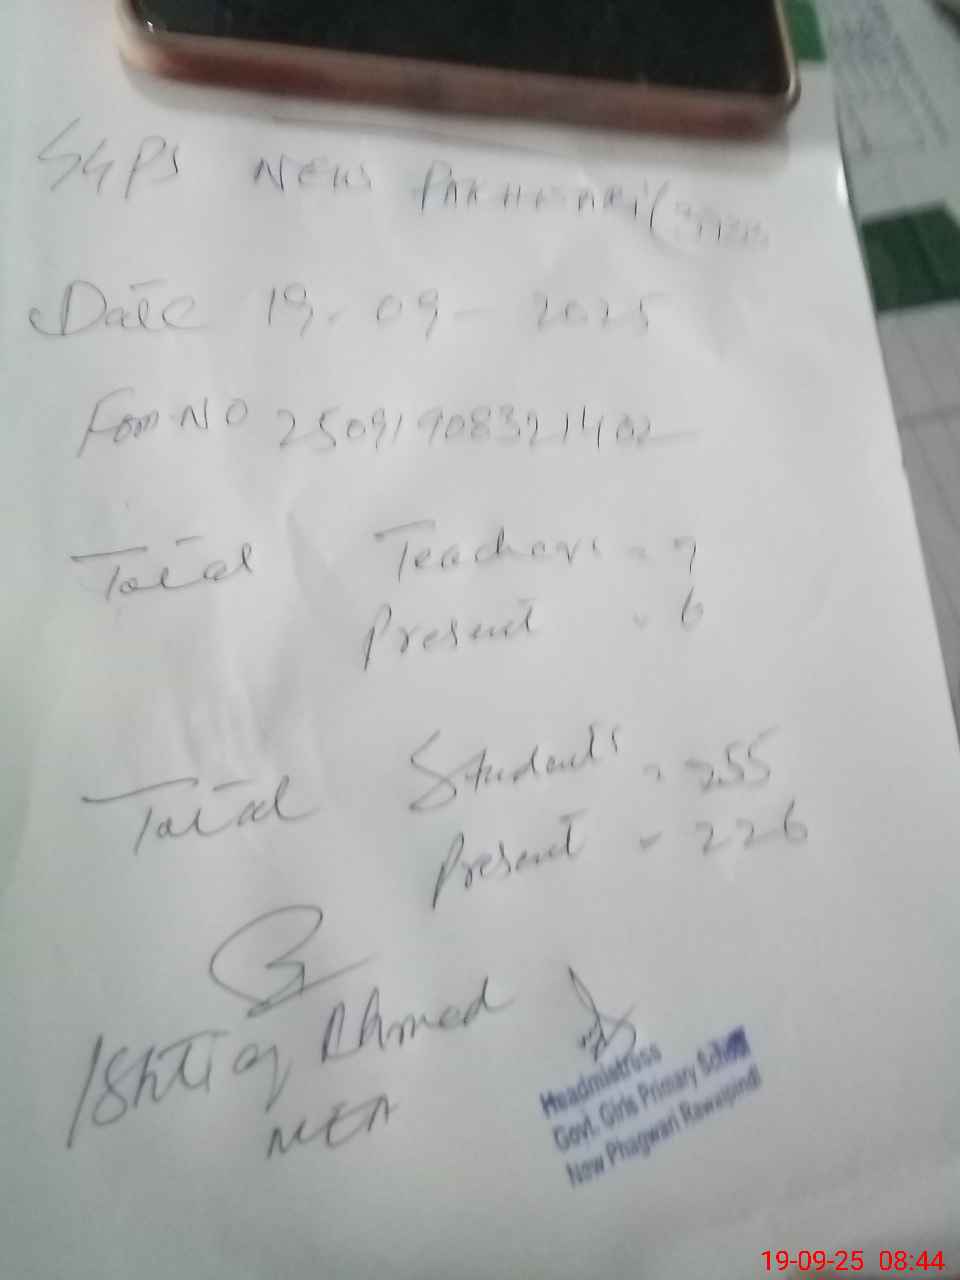 GGPS NEW PAKHWARI
Date 19-09-2025
Form NO 25091908321402
Total Teachers = 7
Present = 6
Total Students = 255
Present = 226
Ishtiaq Ahmed
MEA
Headmistress
Govt. Girls Primary School
New Phagwari Rawalpindi
19-09-25 08:44